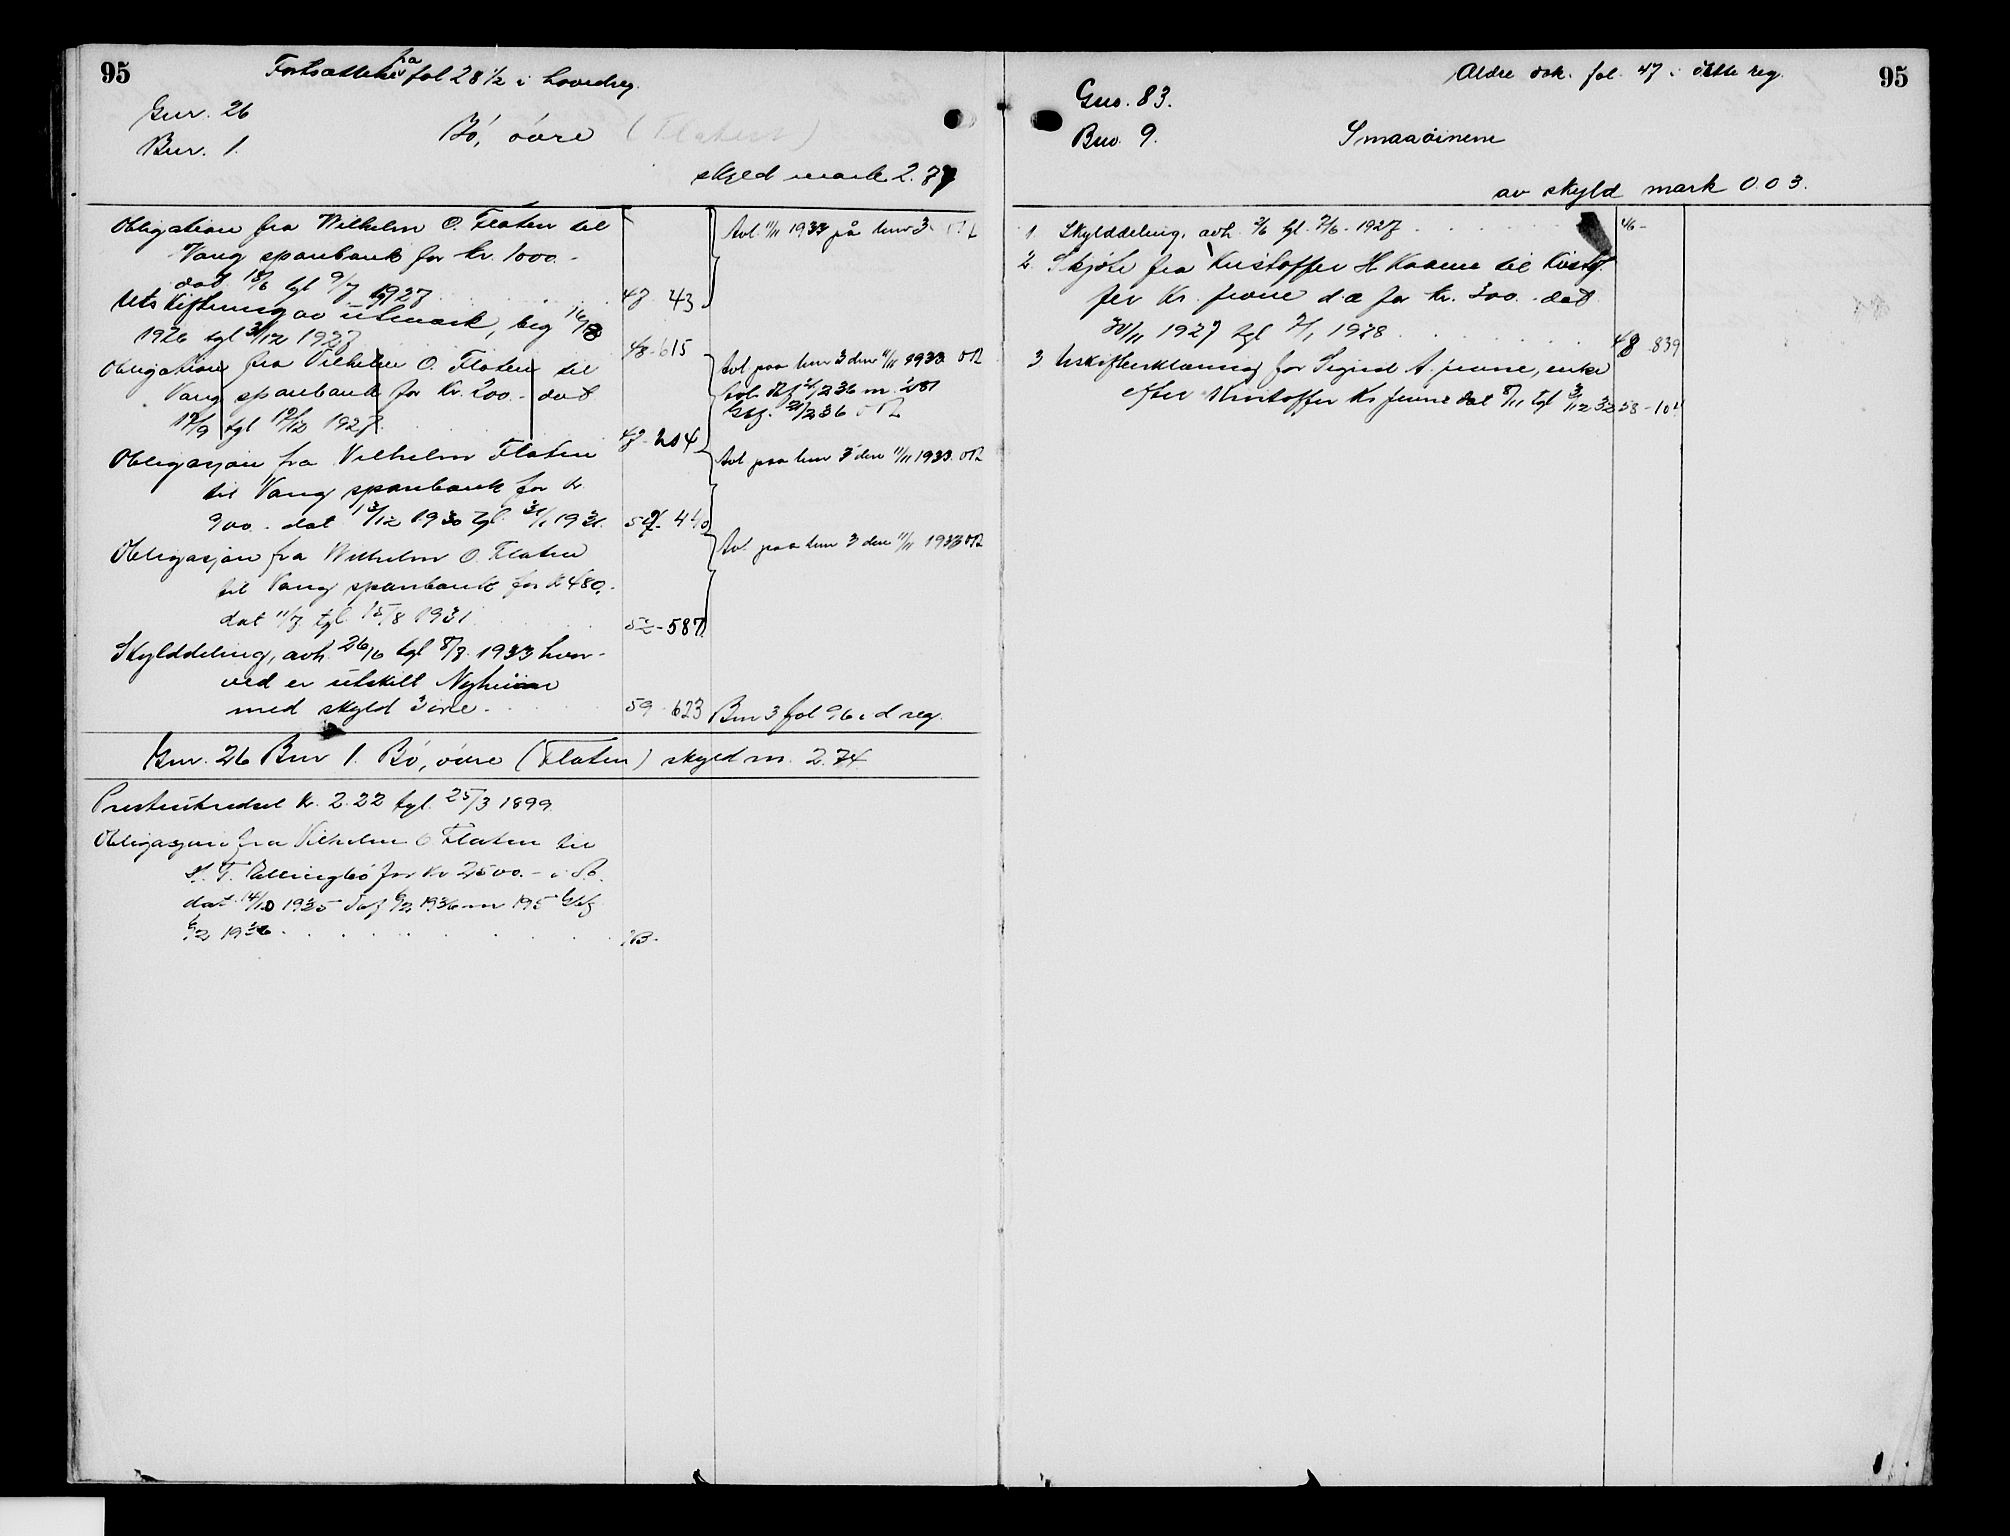 95
Fortsættelse fra fol 28½ i hovedreg.
Gnr. 26
Bnr. 1.
Bö, övre (Flaten)
skyld mark 2.77
Obligation fra Wilhelm O. Flaten til
Vang sparebank for kr. 1000.-
dat 18/6 tgl 9/7 1927 47 43
avl. 11/11 1933 på lnr 3.
Utskiftning av utmark, beg 16/8
1926 tgl 31/12 1927 48-615
Obligation fra Vilhelm O. Flaten til
Vang sparebank for Kr. 200.- dat
17/9 tgl 19/12 1927 48-204
avl paa lnr 3 den 11/11 1933
Obligasjon fra Vilhelm Flaten
til Vang sparebank for kr
900.- dat 13/12 1930 tgl 3/1 1931 440
avl paa lnr 3 den 11/11 1933
Obligasjon fra Wilhelm O. Flaten
til Vang sparebank for kr 480.-
dat 11/7 tgl 15/8 1931 52-587
avl paa lnr 3 den 11/11 1933
Skylddeling, avh. 26/6 tgl 8/7 1933 hvor-
ved er utskilt Nyheim
med skyld 3 öre. 59-623 Bnr 3 fol 96 i d reg.
Gnr. 26 Bnr 1. Bö, övre (Flaten) skyld m. 2.74
Presteutredsel kr. 2.22 tgl. 25/3 1899
Obligasjon fra Vilhelm O Flaten til
for Kr 2500.-
dat 14/10 1935 6/2 1936 nr 195
6/2 1936
95
Ældre dok. fol. 47 i dette reg.
Gno. 83.
Bno. 9.
Smaaöinene
av skyld mark 0.03.
1. Skylddeling, avh. 2/6 tgl. 7/6- 1927 46-
2. Skjöte fra Kristoffer H Kaane til Kristof-
fer Kr. d.æ for kr. 300.- dat
30/11 1927 tgl 7/1 1928 48 839
3 Uskifteerklæring for Sigrid A. enke
efter Kristoffer Kr dat 8/11 tgl 3/12 32 53-104